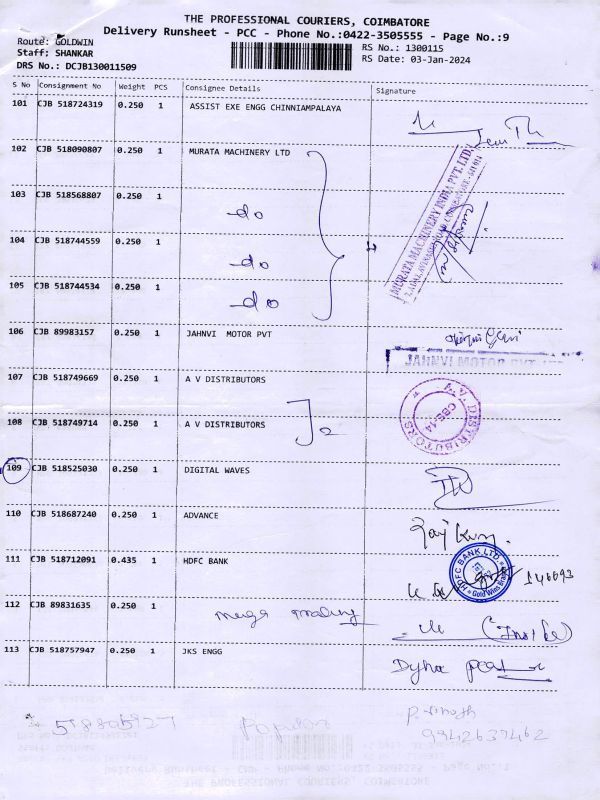 THE PROFESSIONAL COURIERS, COIMBATORE
Delivery Runsheet - PCC - Phone No.:0422-3505555 - Page No.:9
Route: GOLDWIN
RS No.: 1300115
Staff: SHANKAR
RS Date: 03-Jan-2024
DRS No.: DCJB130011509
S No Consignment No Weight PCS Consignee Details Signature
101 CJB 518724319 0.250 1 ASSIST EXE ENGG CHINNIAMPALAYA
102 CJB 518090807 0.250 1 MURATA MACHINERY LTD
MURATA MACHINERY INDIA PVT. LTD.
103 CJB 518568807 0.250 1
do
104 CJB 518744559 0.250 1
do
4
105 CJB 518744534 0.250 1
do
106 CJB 89983157 0.250 1 JAHNVI MOTOR PVT
JAHNVI MOTOR PVT. LTD
107 CJB 518749669 0.250 1 A V DISTRIBUTORS
A.V. DISTRIBUTORS
CBE-14
108 CJB 518749714 0.250 1 A V DISTRIBUTORS
2
109 CJB 518525030 0.250 1 DIGITAL WAVES
110 CJB 518687240 0.250 1 ADVANCE
111 CJB 518712091 0.435 1 HDFC BANK
HDFC BANK LTD.
Goldwins Branch
112 CJB 89831635 0.250 1
113 CJB 518757947 0.250 1 JKS ENGG
Popular
9942637462